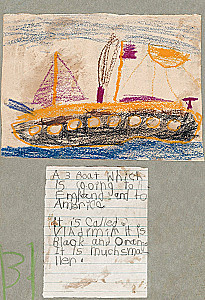 A 3 Boat Which
Is going to
England and to
America
It is Called
It is
Black and Orang
It is much smal
ller.